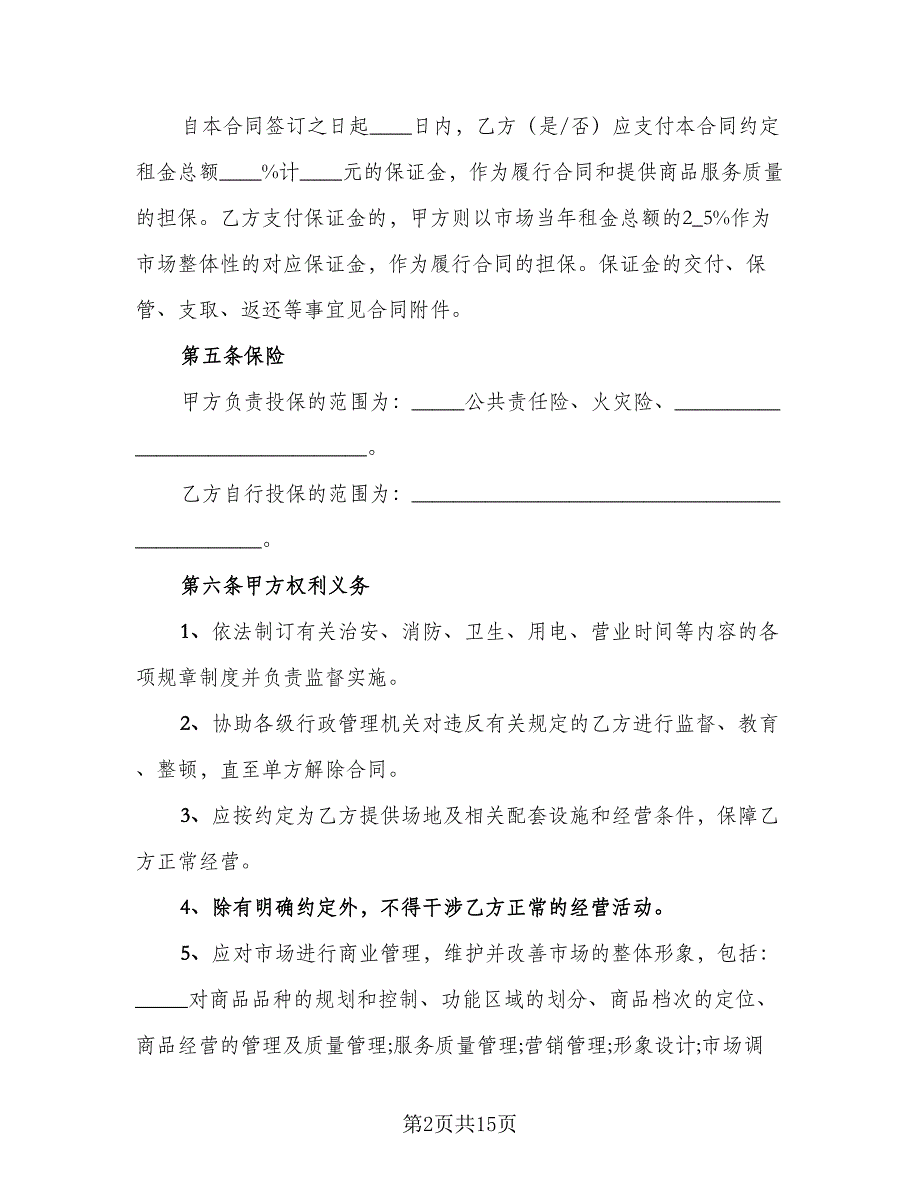 自本合同签订之日起____日内，乙方（是/否）应支付本合同约定
租金总额____%计____元的保证金，作为履行合同和提供商品服务质量
的担保。乙方支付保证金的，甲方则以市场当年租金总额的2_5%作为
市场整体性的对应保证金，作为履行合同的担保。保证金的交付、保
管、支取、返还等事宜见合同附件。
第五条保险
甲方负责投保的范围为：_____公共责任险、火灾险、__________
______________________。
乙方自行投保的范围为：___________________________________
____________。
第六条甲方权利义务
1、依法制订有关治安、消防、卫生、用电、营业时间等内容的各
项规章制度并负责监督实施。
2、协助各级行政管理机关对违反有关规定的乙方进行监督、教育
、整顿，直至单方解除合同。
3、应按约定为乙方提供场地及相关配套设施和经营条件，保障乙
方正常经营。
4、除有明确约定外，不得干涉乙方正常的经营活动。
5、应对市场进行商业管理，维护并改善市场的整体形象，包括：
_____对商品品种的规划和控制、功能区域的划分、商品档次的定位、
商品经营的管理及质量管理;服务质量管理;营销管理;形象设计;市场调
第2页共15页